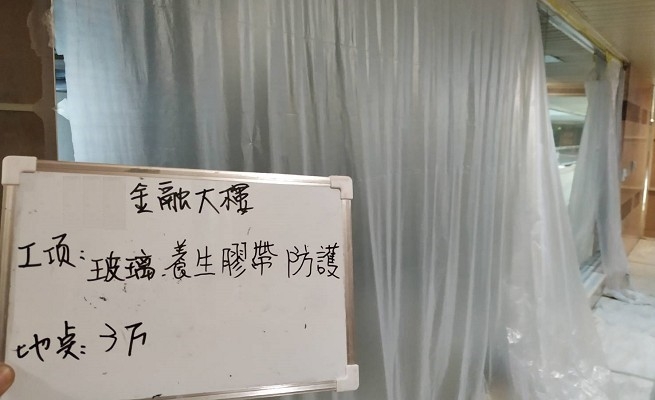 金融大樓
工项:玻璃養生膠帶防護
地点:3F